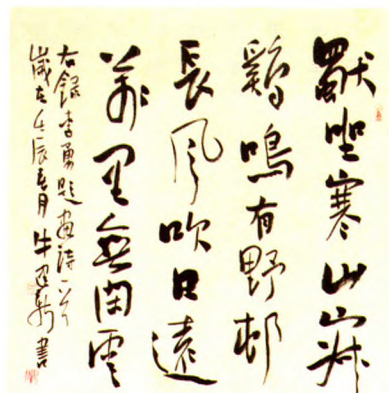 默坐寒山寂
鷄鳴有野邨
長風吹日遠
萬里無閑雲
右錄李勇題畫詩一首
歲在壬辰春月牛書